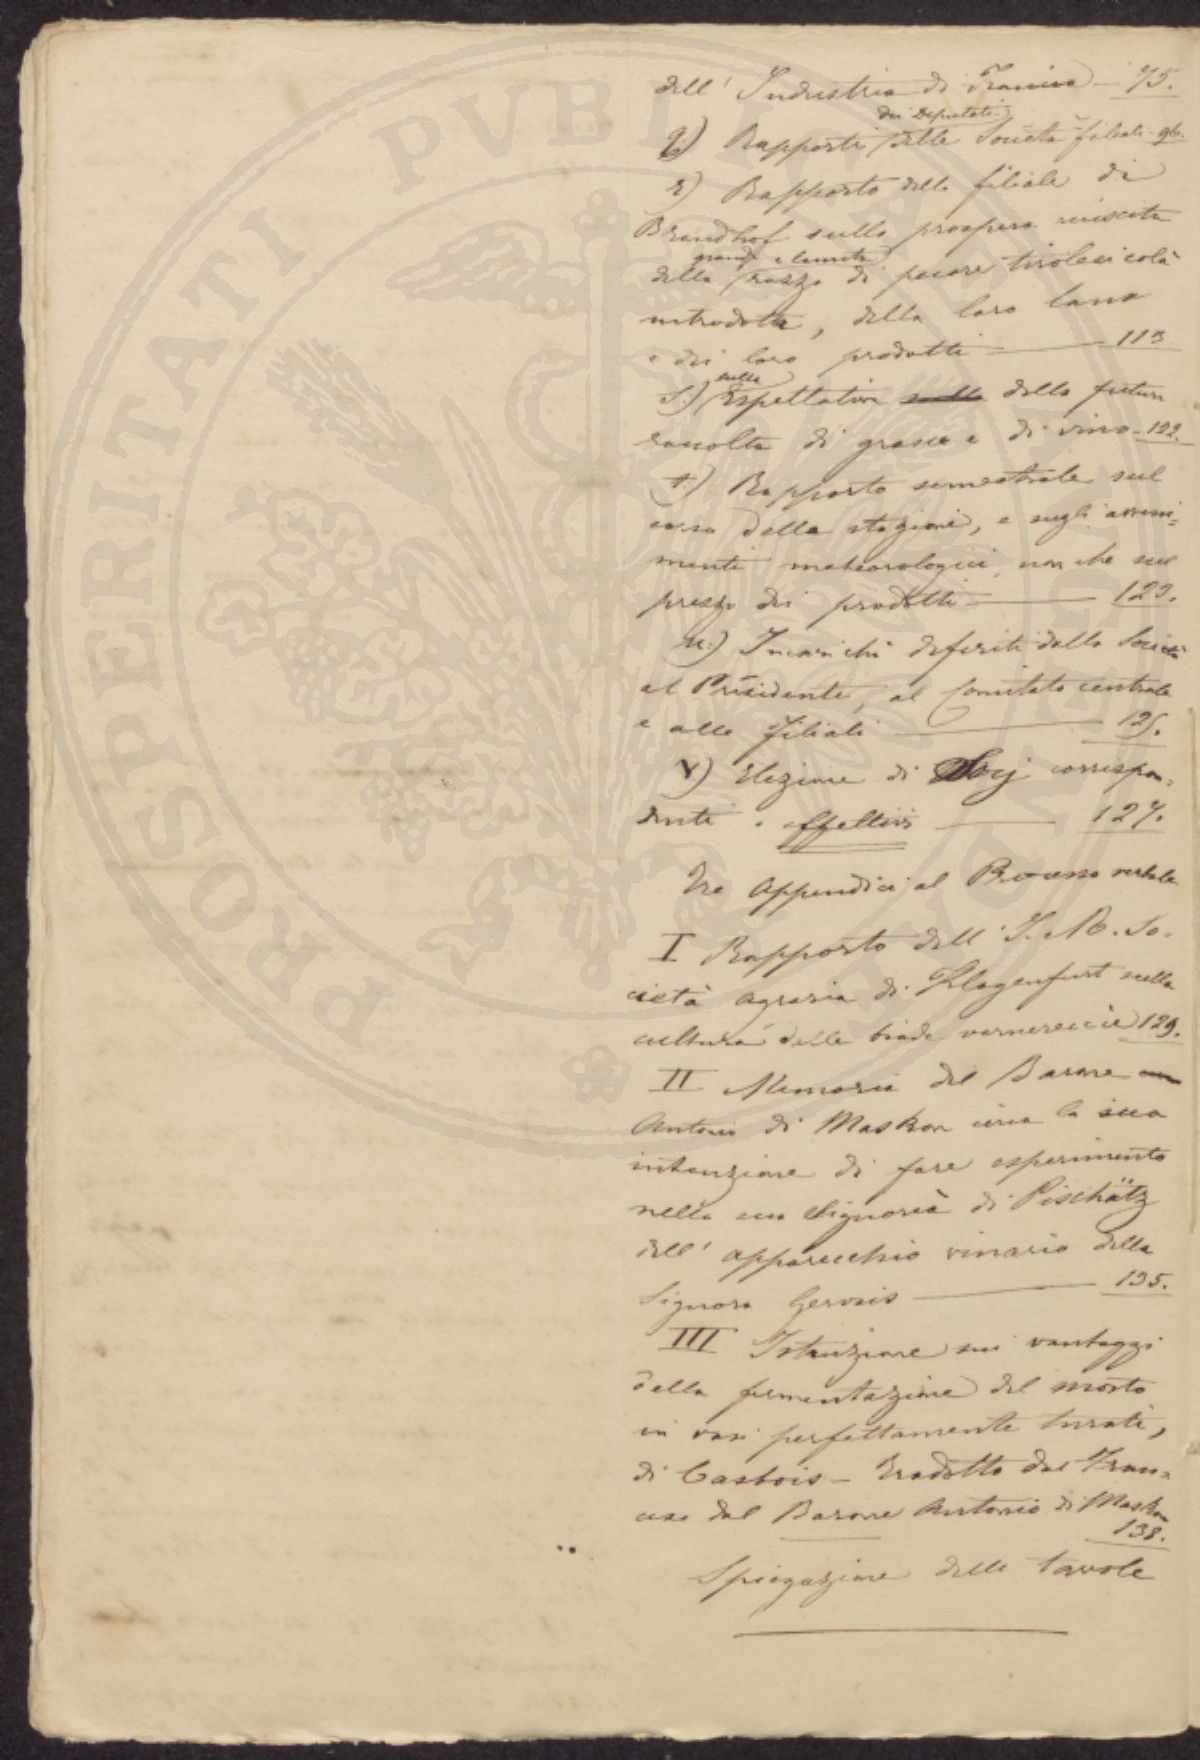 dell' Industria di Francia — 75.
dei Deputati
q) Rapporti delle Società filiali - 96.
r) Rapporto della filiale di
Brandhof sulla prospera riuscita
grande e lanuta
della razza di pecore tirolesi colà
introdotta, della loro lana
e dei loro prodotti — 113
sulle
s.) Espettative sulla della futura
raccolta di grano e di vino - 122.
t.) Rapporto semestrale sul
corso delle stagioni, e sugli avveni=
menti meteorologici, non che sul
prezzo dei prodotti — 123.
u.) Incarichi deferiti dalla Società
al Presidente, al Comitato centrale
e alle filiali — 125.
v) Elezione di Socj correspon=
denti e effettivi — 127.
Tre Appendici al Processo verbale
I Rapporto dell' I. R. So=
cietà agraria di Klagenfurt sulla
cultura delle biade vernerecce 129.
II Memoria del Barone
Antonio di Maskon circa la sua
intenzione di fare esperimento
nella sua Signoria di Pischätz
dell' apparecchio vinario della
Signora Gervais — 135.
III Istruzione sui vantaggi
della fermentazione del mosto
in vasi perfettamente turati,
di Casbois - Tradotto dal Fran=
cese dal Barone Antonio di Maskon
138.
Spiegazione delle tavole
PROSPERITATI PVBLICAE AVGENDAE